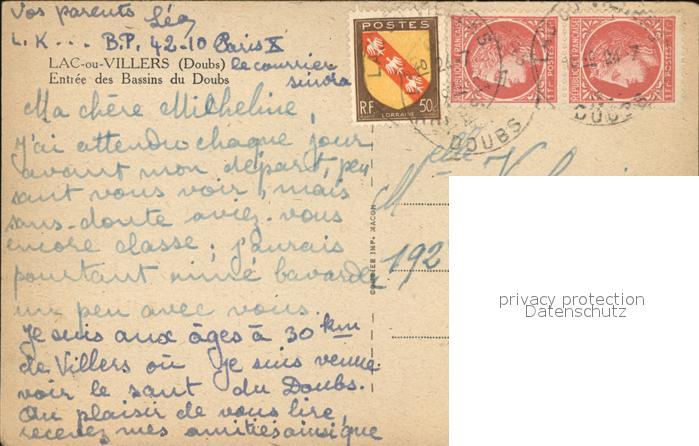 Vos parents Léa
L. K... B.P. 42-10 Paris X
le courrier
suivra
LAC-ou-VILLERS (Doubs)
Entrée des Bassins du Doubs
Ma chère Micheline,
J'ai attendu chaque jour
avant mon départ, pen
sant vous voir, mais
sans-doute aviez-vous
encore classe; j'aurais
pourtant aimé bavarder
un peu avec vous.
Je suis aux âges à 30 km
de Villers où je suis venue
voir le saut du Doubs.
Au plaisir de vous lire,
recevez mes amitiés ainsi que
POSTES
RF 50c
LORRAINE
REPUBLIQUE FRANÇAISE
POSTES
1F
REPUBLIQUE FRANÇAISE
1F
DOUBS
DOUBS
Melle
192
IMP. MACON
privacy protection
Datenschutz